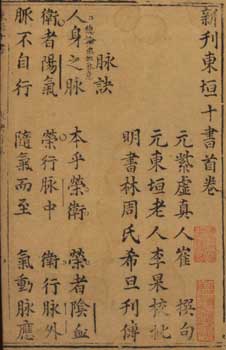 新刊東垣十書首卷
元紫虛真人崔 撰句
元東垣老人李杲校批
明書林周氏希旦刊傳
脉訣
人身之脉 本乎榮衛 榮者隂血
衛者陽氣 榮行脉中 衛行脉外
脉不自行 隨氣而至 氣動脉應